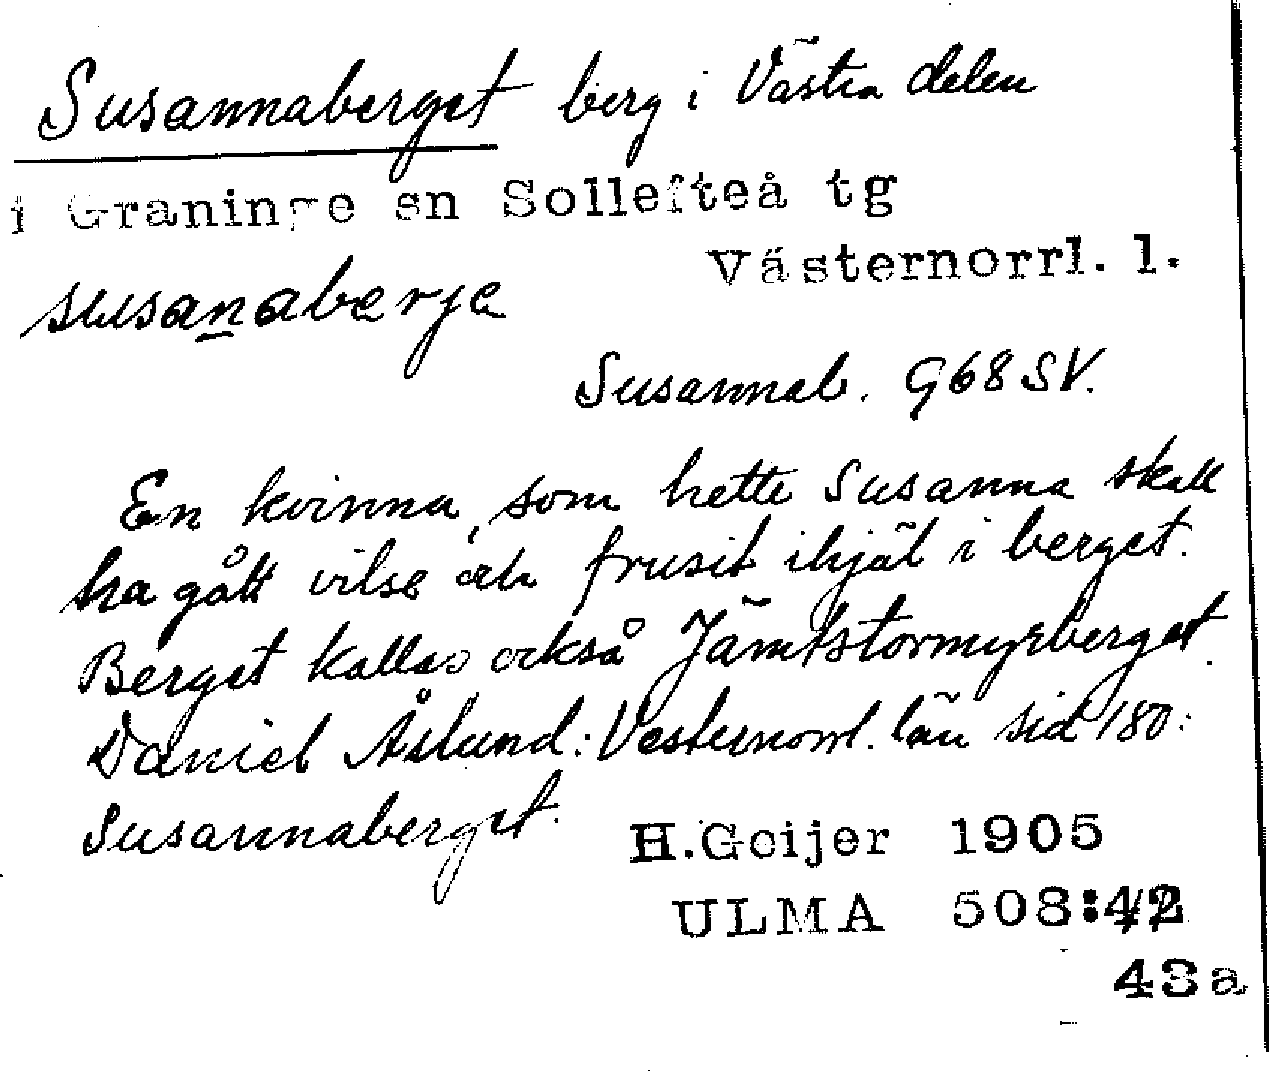 Susannaberget berg i Västra delen
i Graninge sn Sollefteå tg
Västernorrl. l.
susanaberje
Susannab. G68SV.
En kvinna, som hette Susanna skall
ha gått vilse och frusit ihjäl i berget.
Berget kallas också Jämtstormyrberget.
Daniel Åslund: Vesternorrl. län sid 180:
Susannaberget.
H.Geijer 1905
ULMA 508:42
43a